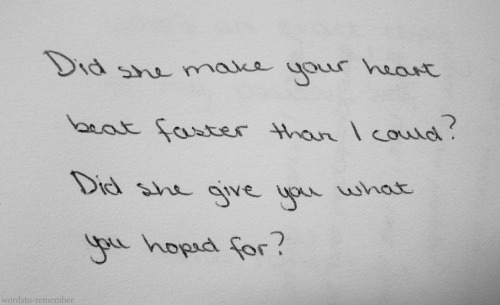 Did she make your heart
beat faster than I could?
Did she give you what
you hoped for?
wordsto-remember